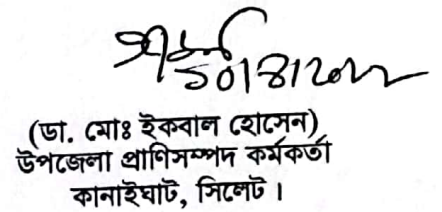 (ডা. মোঃ ইকবাল হোসেন)
উপজেলা প্রাণিসম্পদ কর্মকর্তা
কানাইঘাট, সিলেট।